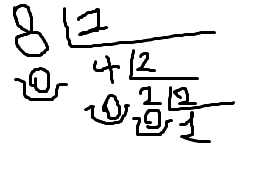 8 2
0 4 2
0 2 2
0 1